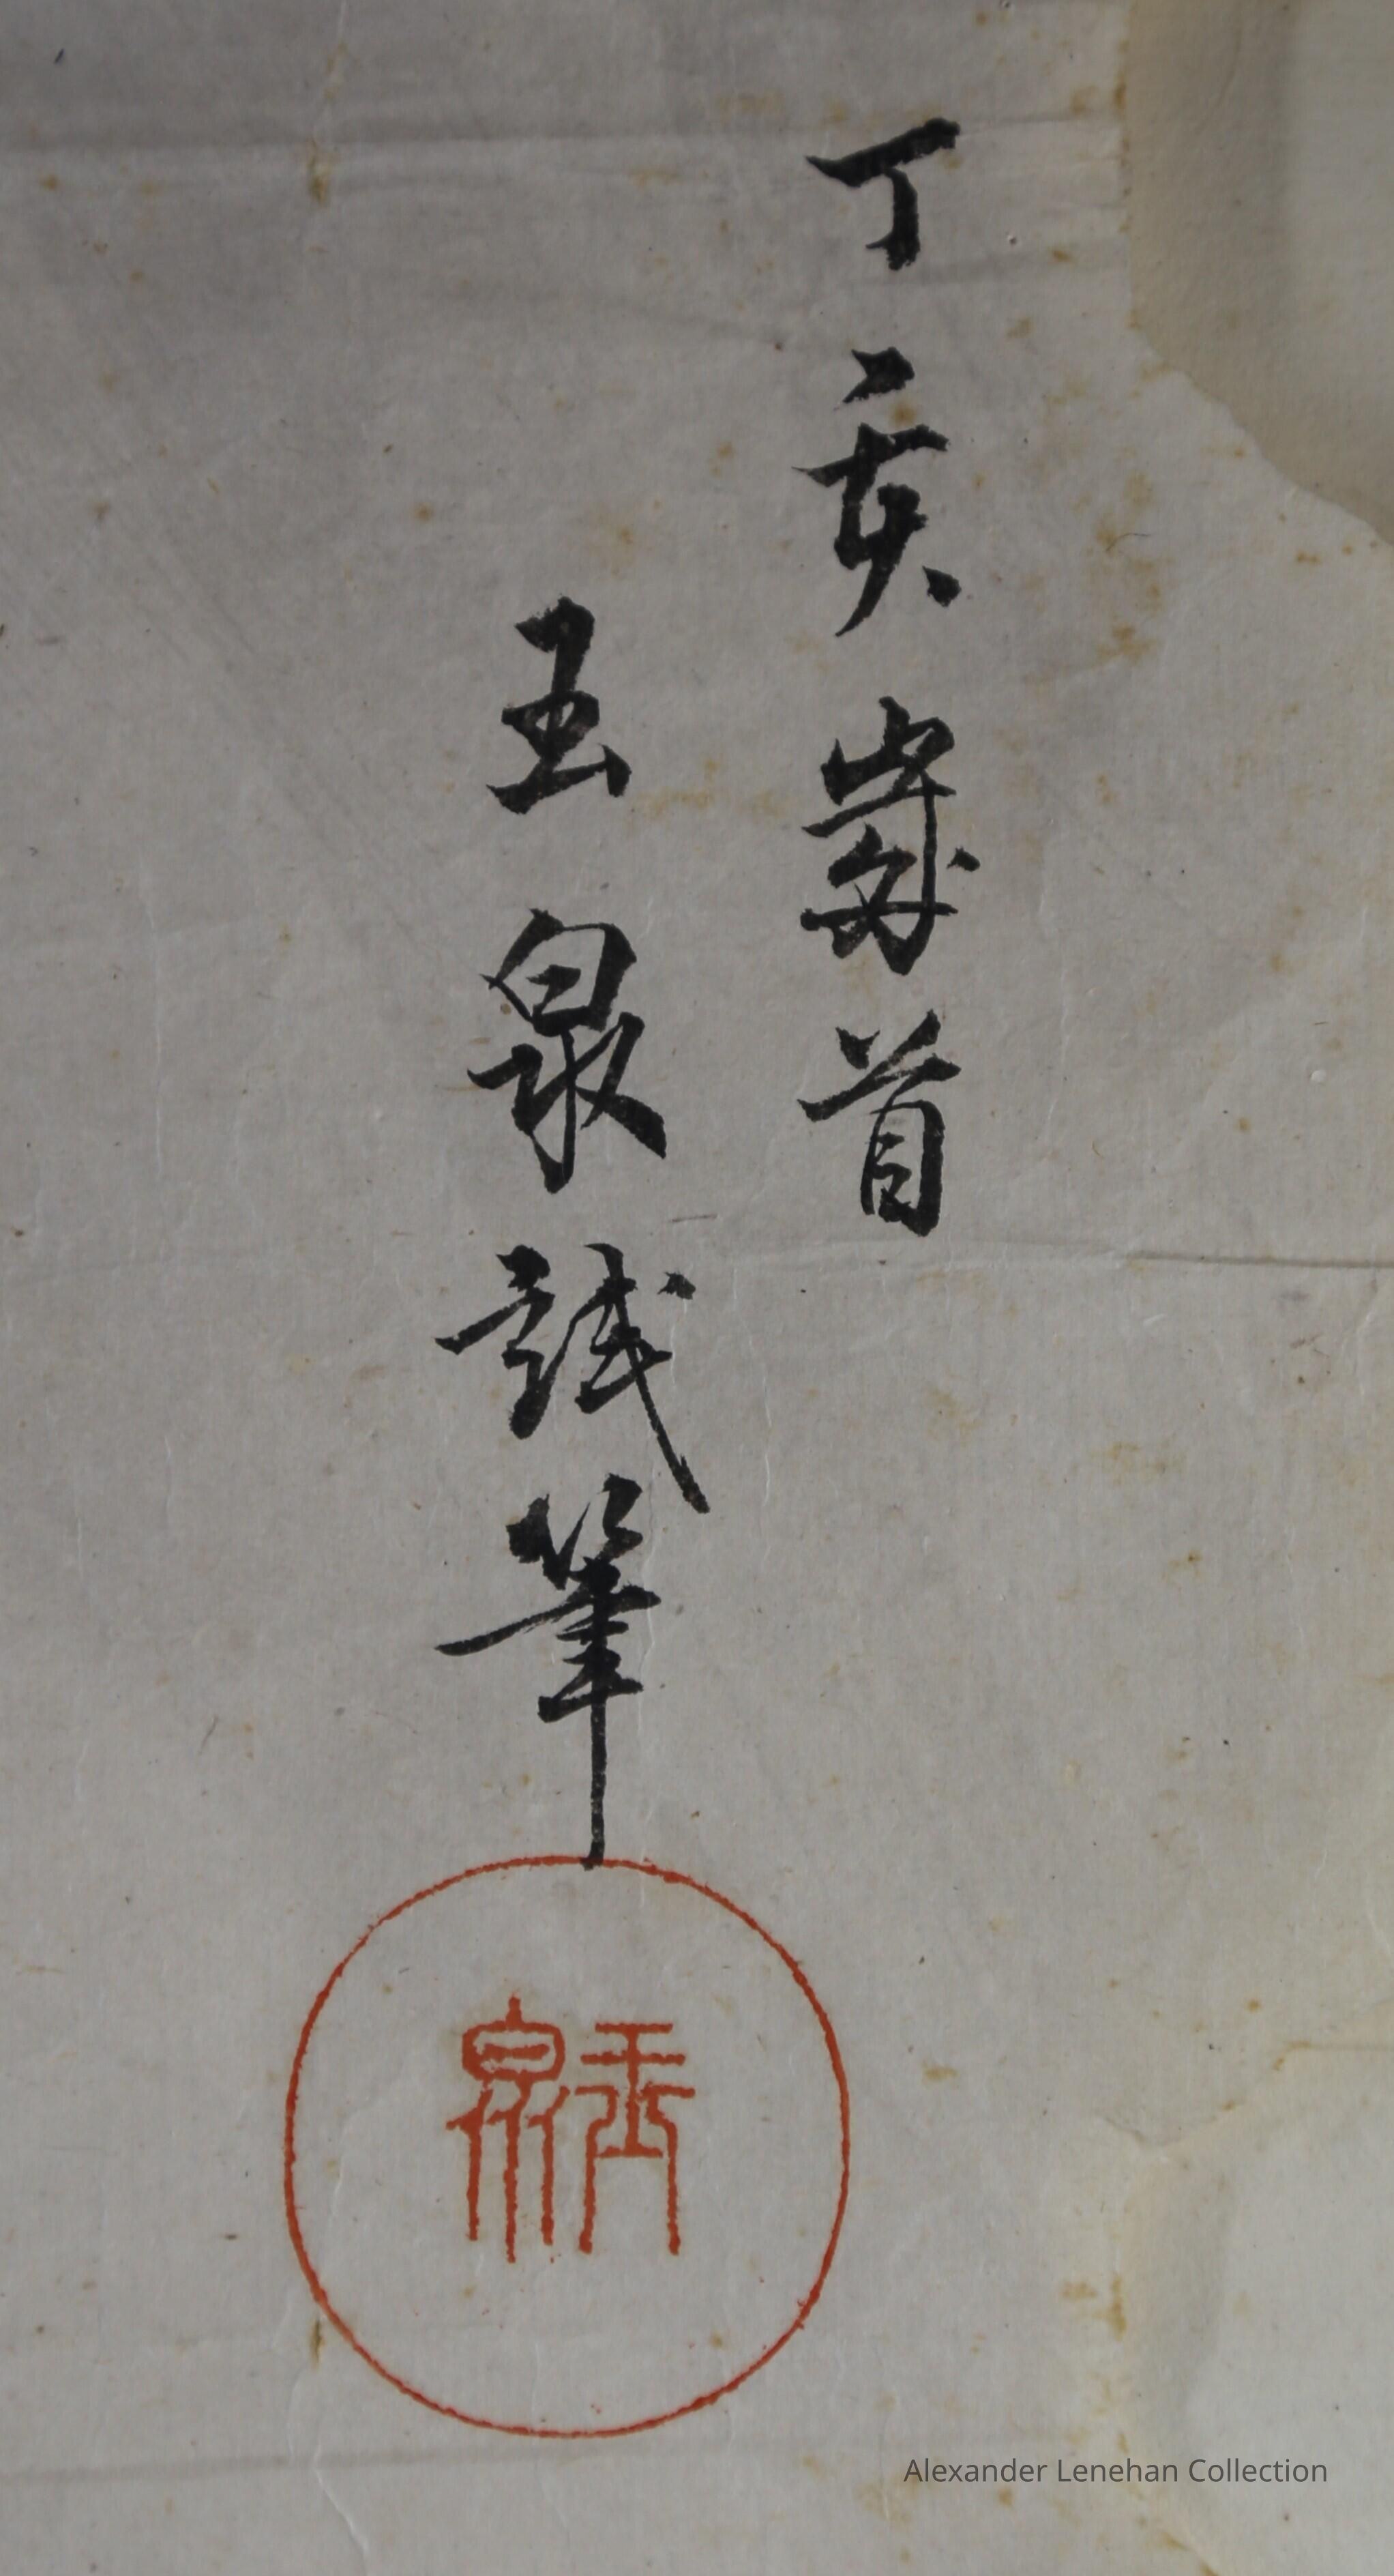 丁亥歳首
玉泉試筆
玉泉
Alexander Lenehan Collection